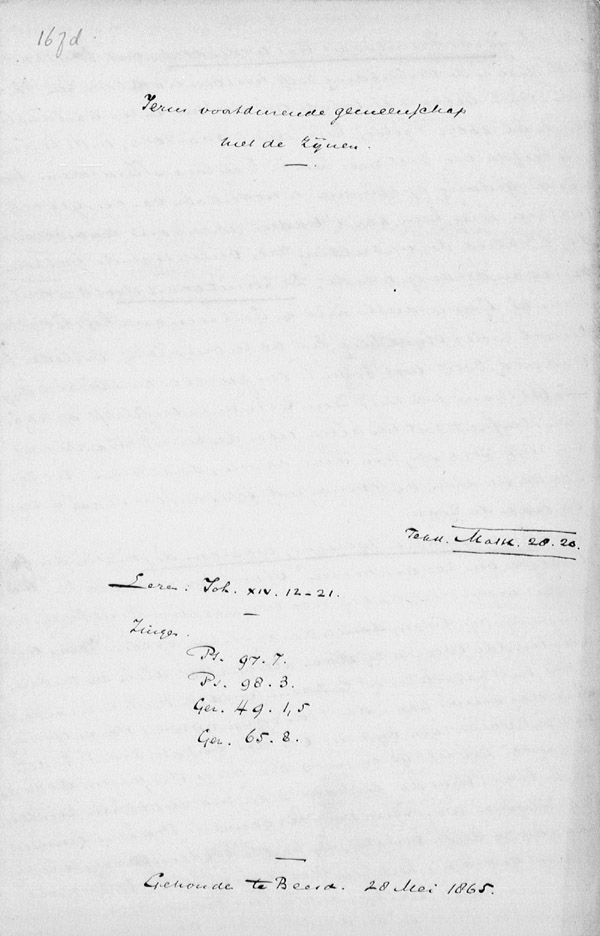 167d
Jezus voortdurende gemeenschap
met de Zijnen.
Tekst. Matth. 28. 20.
Lezen: Joh. XIV. 12-21.
Zingen.
Ps. 97. 7.
Ps. 98. 3.
Gez. 49. 1,5
Gez. 65. 8.
Gehouden te Beesd. 28 Mei 1865.